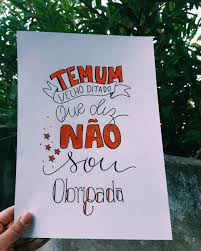 TEM UM
VELHO DITADO
Que diz
NÃO
sou
Obrigada